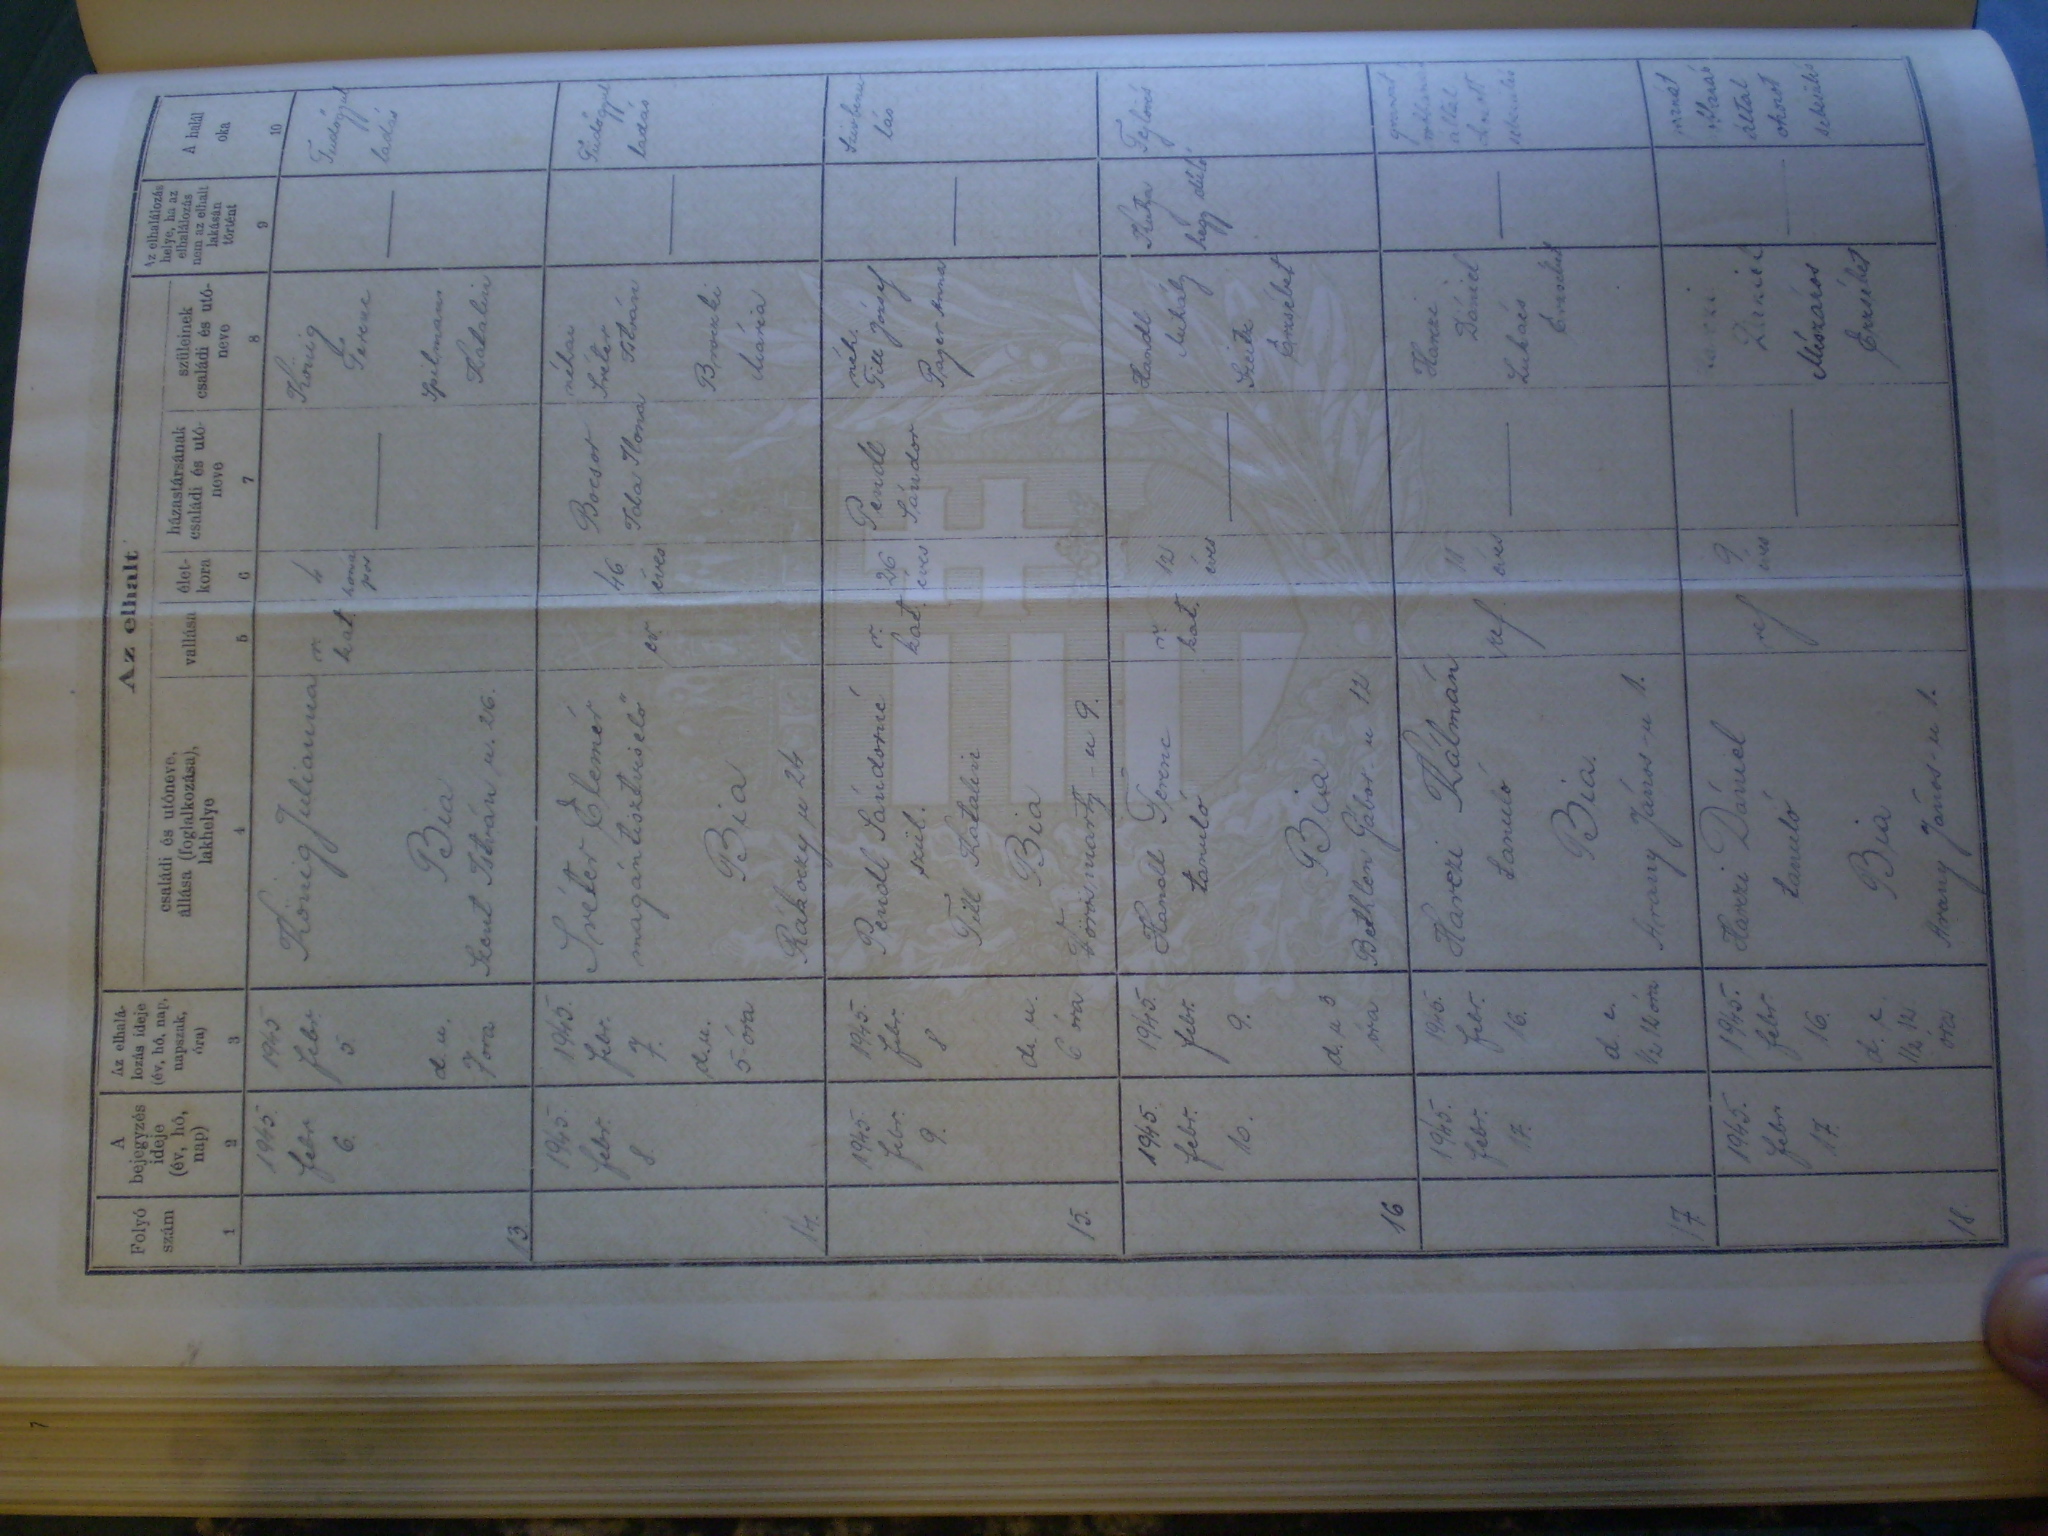 Az elhalt
Folyó
szám
A
bejegyzés
ideje
(év, hó,
nap)
Az elhalá-
lozás ideje
(év, hó, nap,
napszak,
óra)
családi és utóneve,
állása (foglalkozása),
lakhelye
vallása
élet-
kora
házastársának
családi és utó-
neve
szüleinek
családi és utó-
neve
Az elhalálozás
helye, ha az
elhalálozás
nem az elhalt
lakásán
történt
A halál
oka
1
2
3
4
5
6
7
8
9
10
13
1945.
febr.
6.
1945
febr.
5.
d.u.
7 óra
König Julianna
Bia
Szent István u. 26.
r.
kat.
4
hóna
pos
König
Ferenc
Spilmann
Katalin
Tüdőgyul
ladás
14.
1945.
febr.
8.
1945.
febr.
7.
d.u.
5 óra
Sréter Elemér
magántisztviselő
Bia
Rákóczy u 24
ev.
46
éves
Bocsor
Ilona
néhai
Sréter
István
Mária
Tüdőgyul
ladás
15.
1945
febr.
9.
1945.
febr.
8
d. u.
6 óra
Pendl Sándorné
szül.
Till Katalin
Bia
Vörösmarty-u 9.
r.
kat.
26
éves
Pendl
Sándor
néh.
Till József
Anna
Szívbénu
lás
16
1945.
febr.
10.
1945.
febr.
9.
d. u 3
óra
Handl Ferenc
tanuló
Bia
Bethlen Gábor-u 12
r.
kat.
12
éves
Handl
Mihály
Erzsébet
hegy dűlő
Fejlövés
17
1945.
febr.
17.
1945.
febr.
16.
d. e.
1/2 12 óra
Hanczi Kálmán
tanuló
Bia.
Arany János-u 1.
ref.
11
éves
Hanczi
Dániel
Lukács
Erzsébet
gránát
robbanás
által
okozott
sebesülés
18.
1945.
febr.
17.
1945.
febr.
16.
d. e.
1/2 12
óra
Hanczi Dániel
tanuló
Bia
Arany János-u 1.
ref
9
éves
Dániel
Mészáros
Erzsébet
által